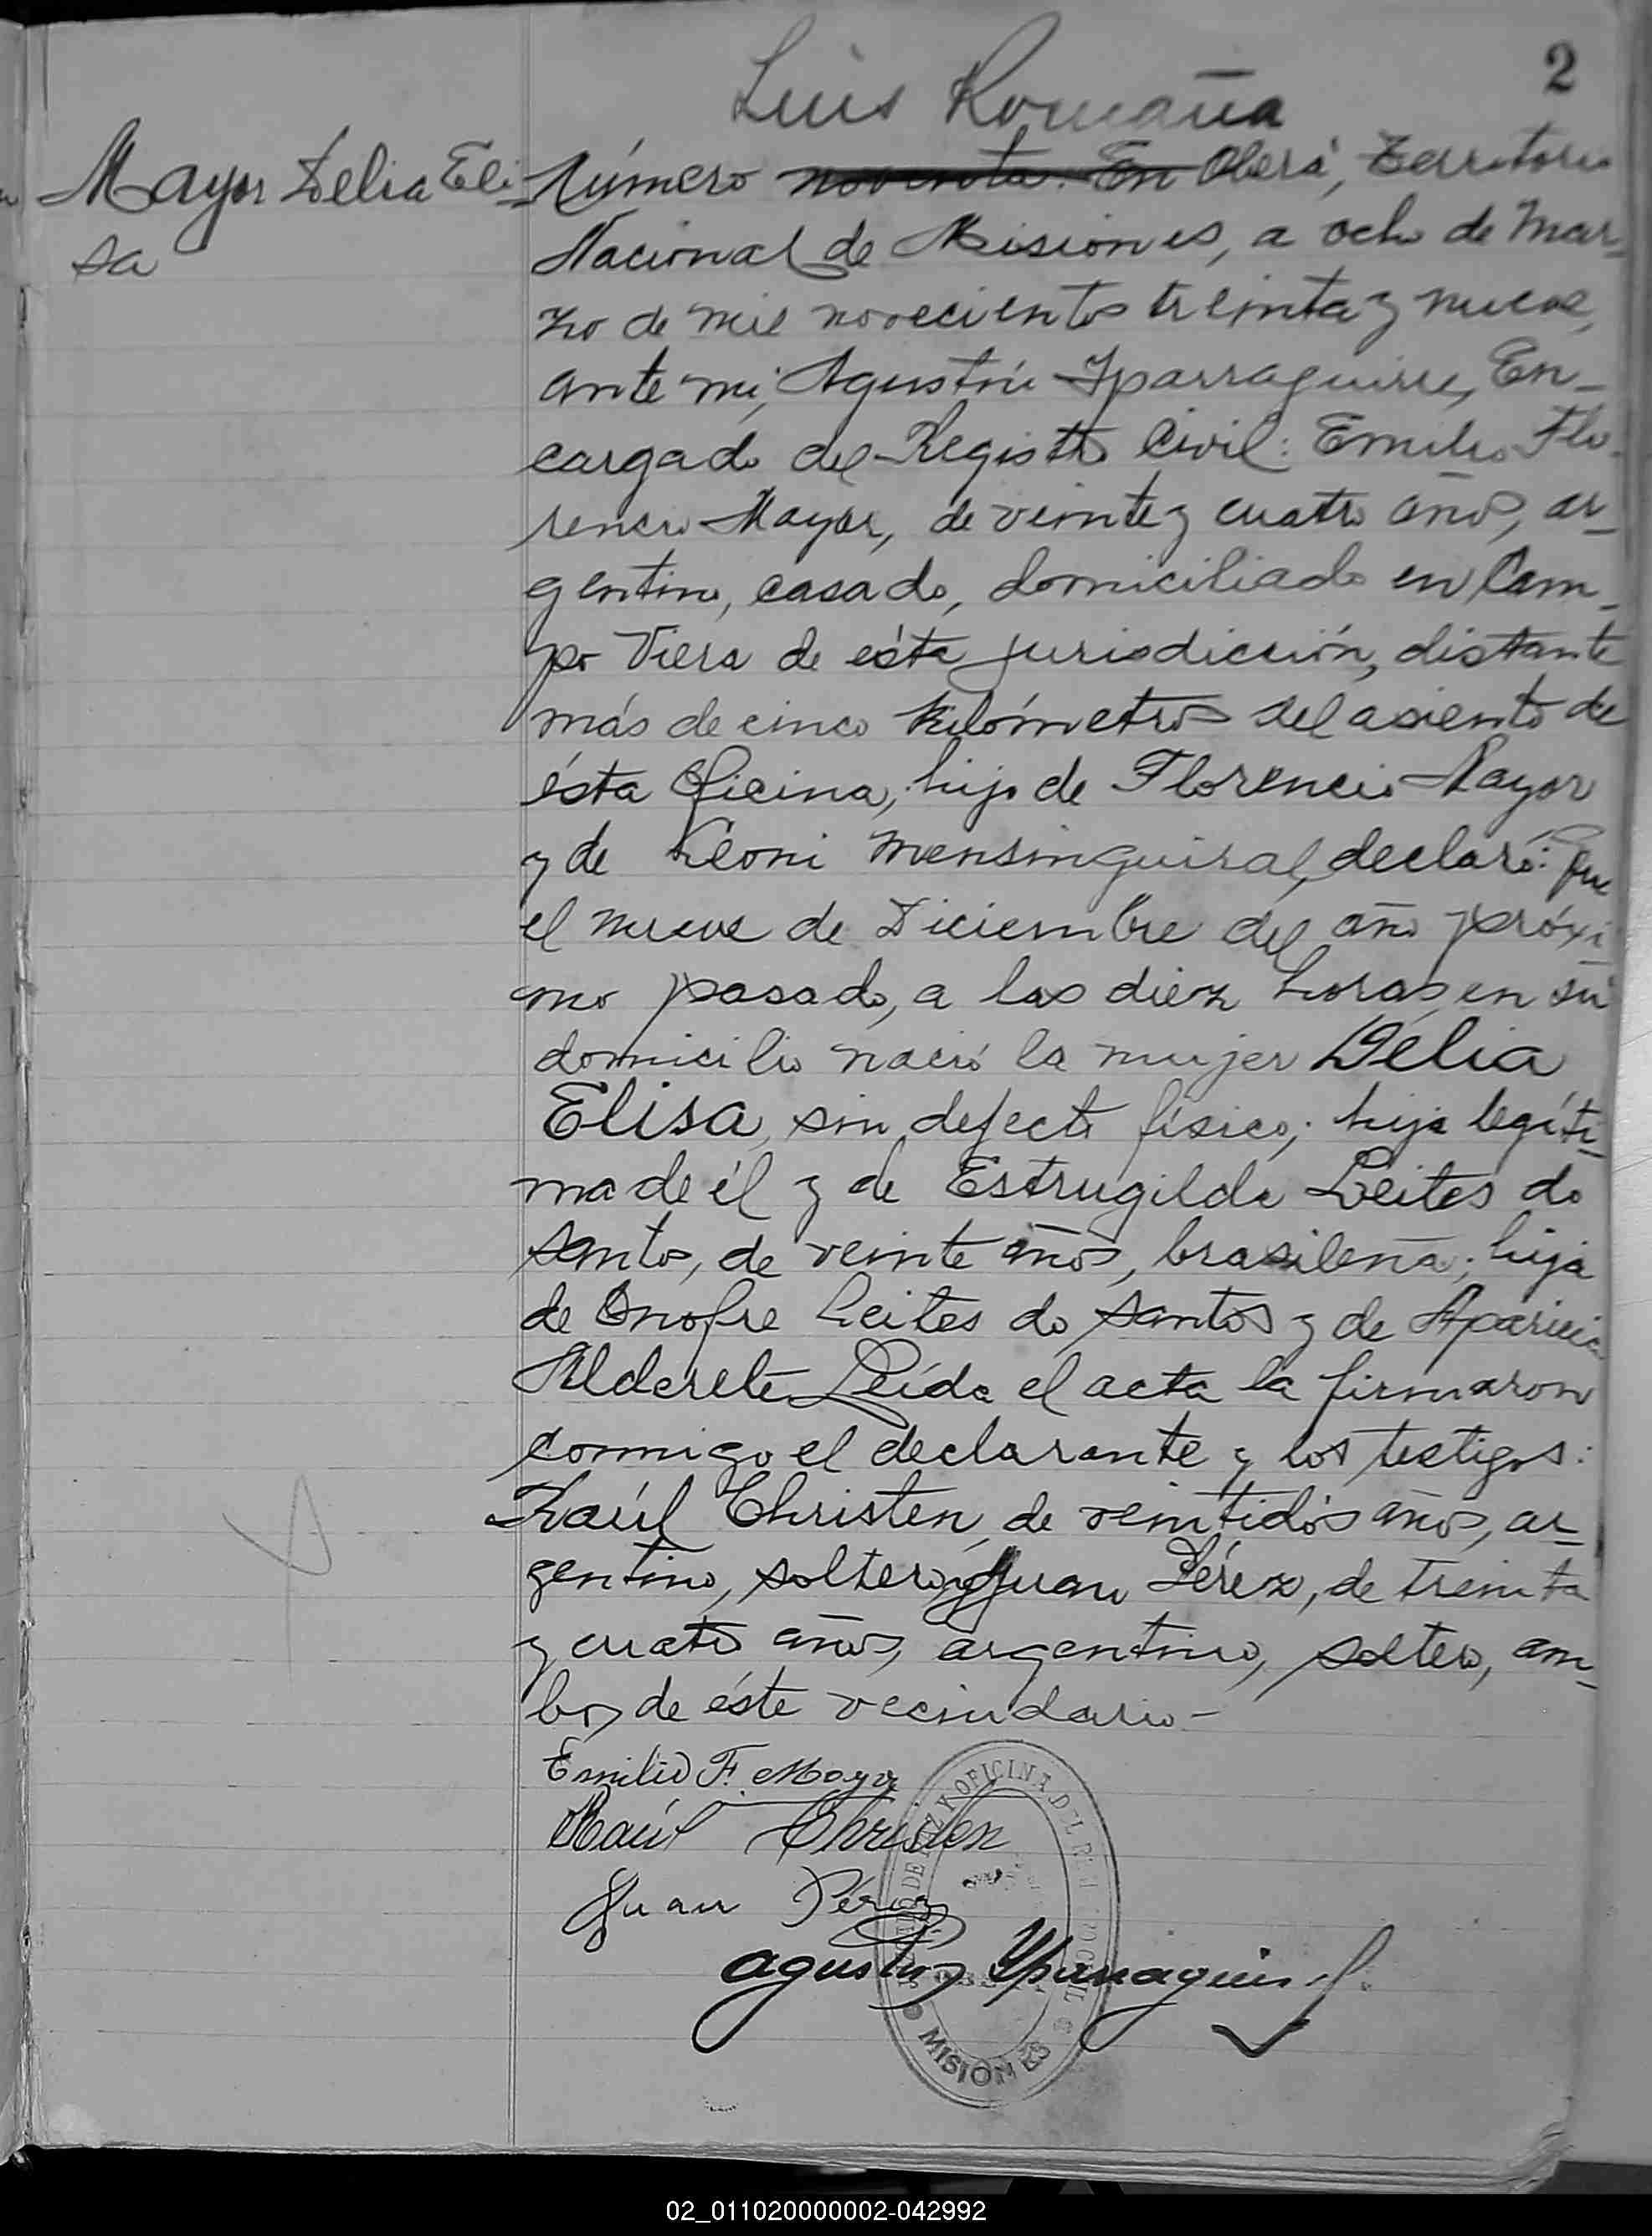 2
Luis Romaña
Mayor Delia Eli-
sa
Número noventa. En Oberá, Territorio
Nacional de Misiones, a ocho de Mar-
zo de mil novecientos treinta y nueve,
ante mí, Agustín Yparraguirre, En-
cargado del Registro Civil: Emilio Flo-
rencio Mayor, de veinte y cuatro años, ar-
gentino, casado, domiciliado en Cam-
po Viera de ésta jurisdicción, distante
más de cinco kilómetros del asiento de
ésta Oficina, hijo de Florencio Mayor
y de Leoni Mensinguiral, declaró: Que
el nueve de Diciembre del año próxi-
mo pasado, a las diez horas, en su
domicilio nació la mujer Delia
Elisa, sin defecto físico; hija legíti-
ma de él y de Estrugilda Leites do
Santos, de veinte años, brasileña; hija
de Onofre Leites do Santos y de Aparicia
Alderete. Leída el acta la firmaron
conmigo el declarante y los testigos:
Raúl Christen, de veintidós años, ar-
gentino, soltero, y Juan Pérez, de treinta
y cuatro años, argentino, soltero, am-
bos de éste vecindario-
Emilio F. Mayor
Raúl Christen
Juan Pérez
Agustín Yparraguirre
DE PAZ Y OFICINA DEL
MISIONES
02_011020000002-042992